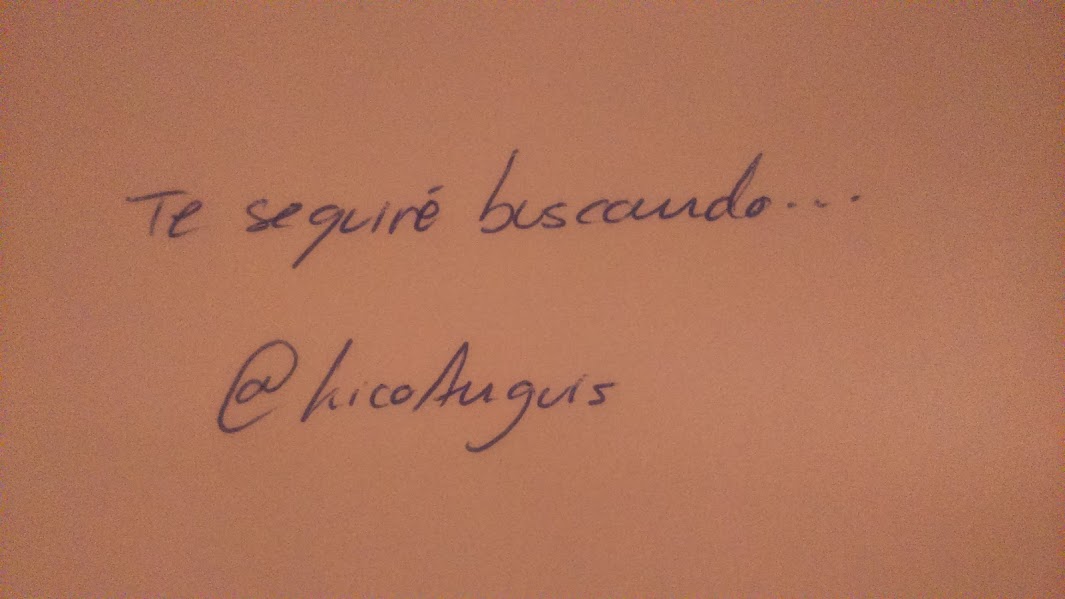 Te seguiré buscando...
@kicoAnguis